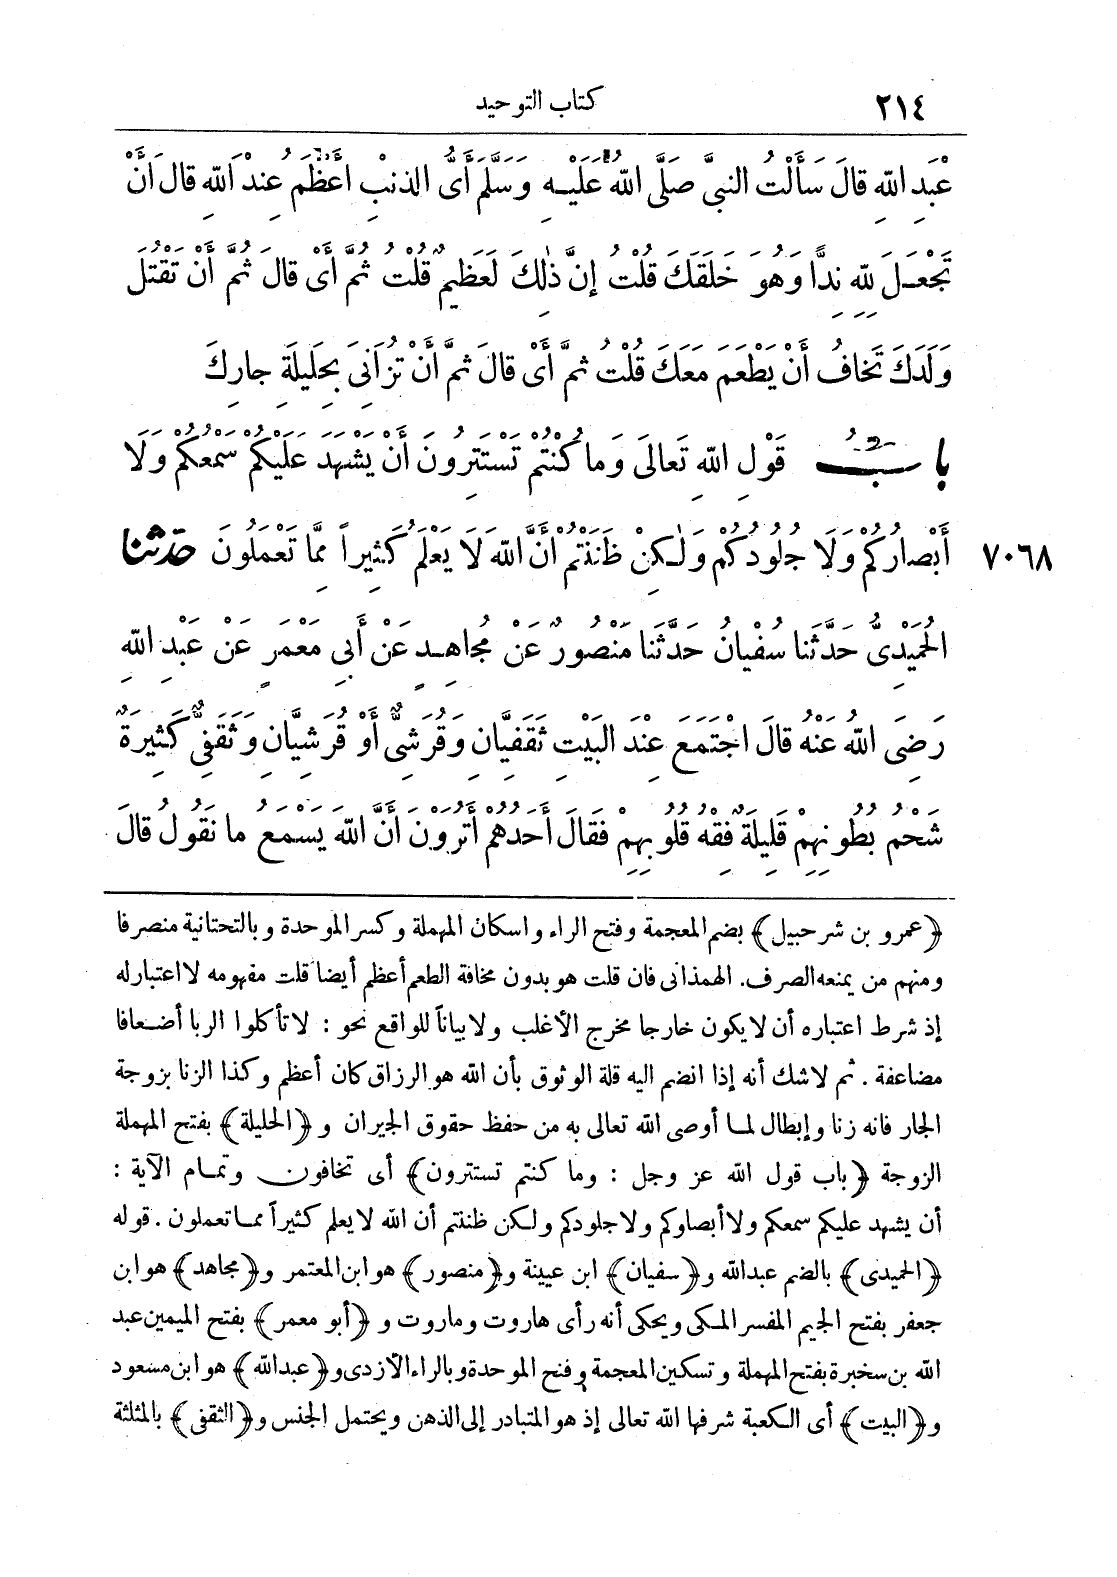 ٢١٤ كتاب التوحيد
عَبْدِ اللهِ قالَ سَأَلْتُ النبىَّ صَلَّى اللهُ عَلَيْهِ وَسَلَّمَ أَىُّ الذنْبِ أَعْظَمُ عِنْدَ اللهِ قالَ أَنْ
تَجْعَلَ لِلّهِ نِدًّا وَهُوَ خَلَقَكَ قُلْتُ إنَّ ذٰلِكَ لَعَظِيمٌ قُلْتُ ثُمَّ أَىْ قالَ ثُمَّ أَنْ تَقْتُلَ
وَلَدَكَ تَخافُ أَنْ يَطْعَمَ مَعَكَ قُلْتُ ثمَّ أَىْ قالَ ثمَّ أَنْ تُزَانِىَ بِحَلِيلَةِ جارِكَ
بابُ قَوْلِ اللهِ تَعالَى وَما كُنْتُمْ تَسْتَتِرُونَ أَنْ يَشْهَدَ عَلَيْكُمْ سَمْعُكُمْ وَلَا
٧٠٦٨ أَبْصارُكُمْ وَلَا جُلُودُكُمْ وَلٰكِنْ ظَنَنْتُمْ أَنَّ اللهَ لَا يَعْلَمُ كَثِيراً مِمَّا تَعْمَلُونَ حَدَّثنا
الْحُمَيْدِىُّ حَدَّثَنا سُفْيانُ حَدَّثَنا مَنْصُورٌ عَنْ مُجاهِدٍ عَنْ أَبِى مَعْمَرٍ عَنْ عَبْدِ اللهِ
رَضِىَ اللهُ عَنْهُ قالَ اجْتَمَعَ عِنْدَ البَيْتِ ثَقَفِيَّانِ وَقُرَشِىٌّ أَوْ قُرَشِيَّانِ وَثَقَفِىٌّ كَثِيرَةٌ
شَحْمُ بُطُونِهِمْ قَلِيلَةٌ فِقْهُ قُلُوبِهِمْ فَقالَ أَحَدُهُمْ أَتَرَوْنَ أَنَّ اللهَ يَسْمَعُ ما نَقُولُ قالَ
﴿عمرو بن شرحبيل﴾ بضم المعجمة وفتح الراء واسكان المهملة وكسر الموحدة وبالتحتانية منصرفا
ومنهم من يمنعه الصرف. الهمذانى فان قلت هو بدون مخافة الطعم أعظم أيضا قلت مفهومه لا اعتبار له
إذ شرط اعتباره أن لا يكون خارجا مخرج الأغلب ولا بياناً للواقع نحو : لا تأكلوا الربا أضعافا
مضاعفة . ثم لاشك أنه إذا انضم اليه قلة الوثوق بأن الله هو الرزاق كان أعظم وكذا الزنا بزوجة
الجار فانه زنا وإبطال لما أوصى الله تعالى به من حفظ حقوق الجيران و ﴿الحليلة﴾ بفتح المهملة
الزوجة ﴿باب قول الله عز وجل : وما كنتم تستترون﴾ أى تخافون وتمام الآية :
أن يشهد عليكم سمعكم ولا أبصاوكم ولا جلودكم ولكن ظننتم أن الله لا يعلم كثيراً مما تعملون . قوله
﴿الحميدى﴾ بالضم عبدالله و﴿سفيان﴾ ابن عيينة و﴿منصور﴾ هو ابن المعتمر و﴿مجاهد﴾ هو ابن
جعفر بفتح الجيم المفسر المكى ويحكى أنه رأى هاروت وماروت و ﴿أبو معمر﴾ بفتح الميمين عبد
الله بن سخبرة بفتح المهملة وتسكين المعجمة وفتح الموحدة وبالراء الأزدى و﴿عبدالله﴾ هو ابن مسعود
و﴿البيت﴾ أى الكعبة شرفها الله تعالى إذ هو المتبادر إلى الذهن ويحتمل الجنس و﴿الثقفى﴾ بالمثلثة